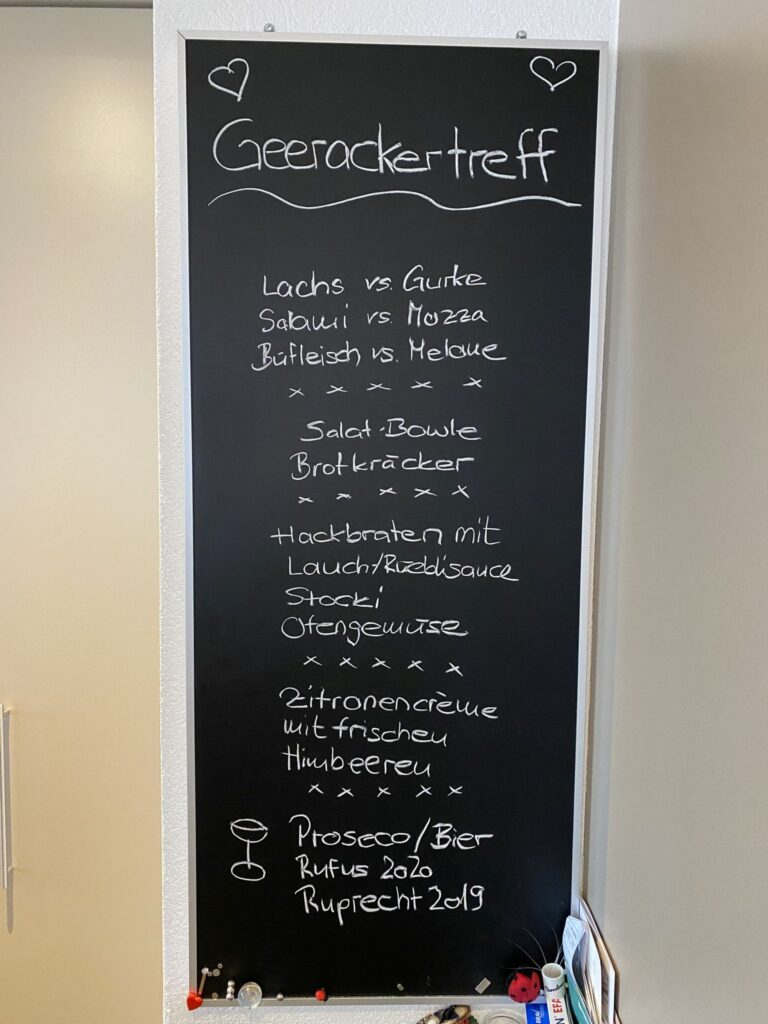 Geerackertreff
Lachs vs. Gurke
Salami vs. Mozza
Büfleisch vs. Melone
x x x x x
Salat-Bowle
Brotkräcker
x x x x x
Hackbraten mit
Lauch/Rüeblisauce
Stocki
Ofengemüse
x x x x x
Zitronencrème
mit frischen
Himbeeren
x x x x x
Proseco/Bier
Rufus 2020
Ruprecht 2019